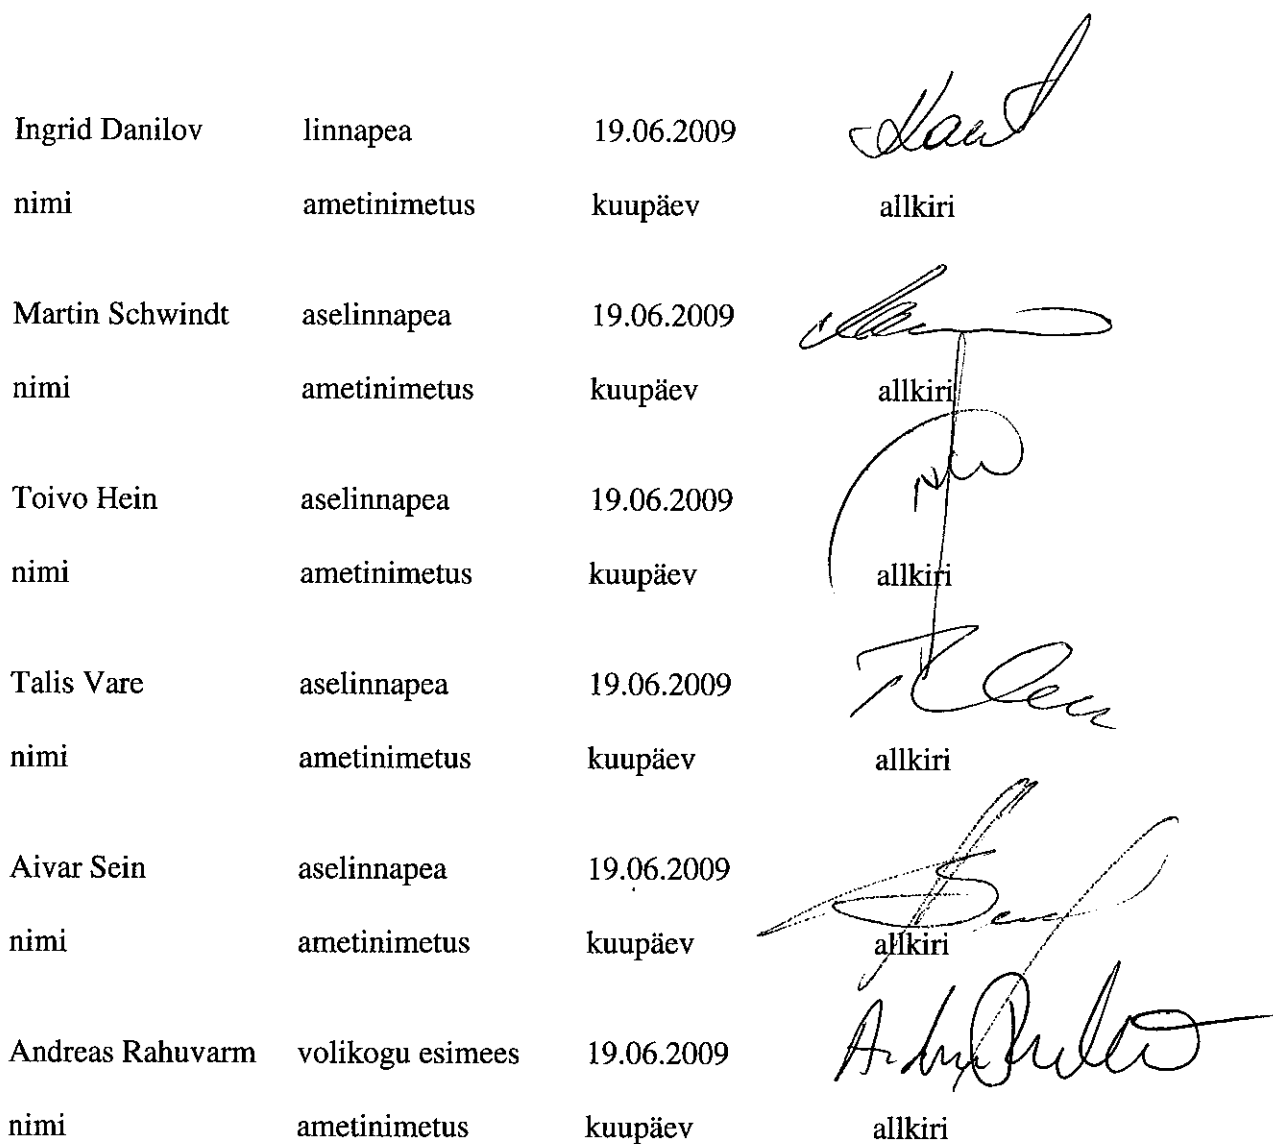 Ingrid Danilov linnapea 19.06.2009
nimi ametinimetus kuupäev allkiri
Martin Schwindt aselinnapea 19.06.2009
nimi ametinimetus kuupäev allkiri
Toivo Hein aselinnapea 19.06.2009
nimi ametinimetus kuupäev allkiri
Talis Vare aselinnapea 19.06.2009
nimi ametinimetus kuupäev allkiri
Aivar Sein aselinnapea 19.06.2009
nimi ametinimetus kuupäev allkiri
Andreas Rahuvarm volikogu esimees 19.06.2009
nimi ametinimetus kuupäev allkiri